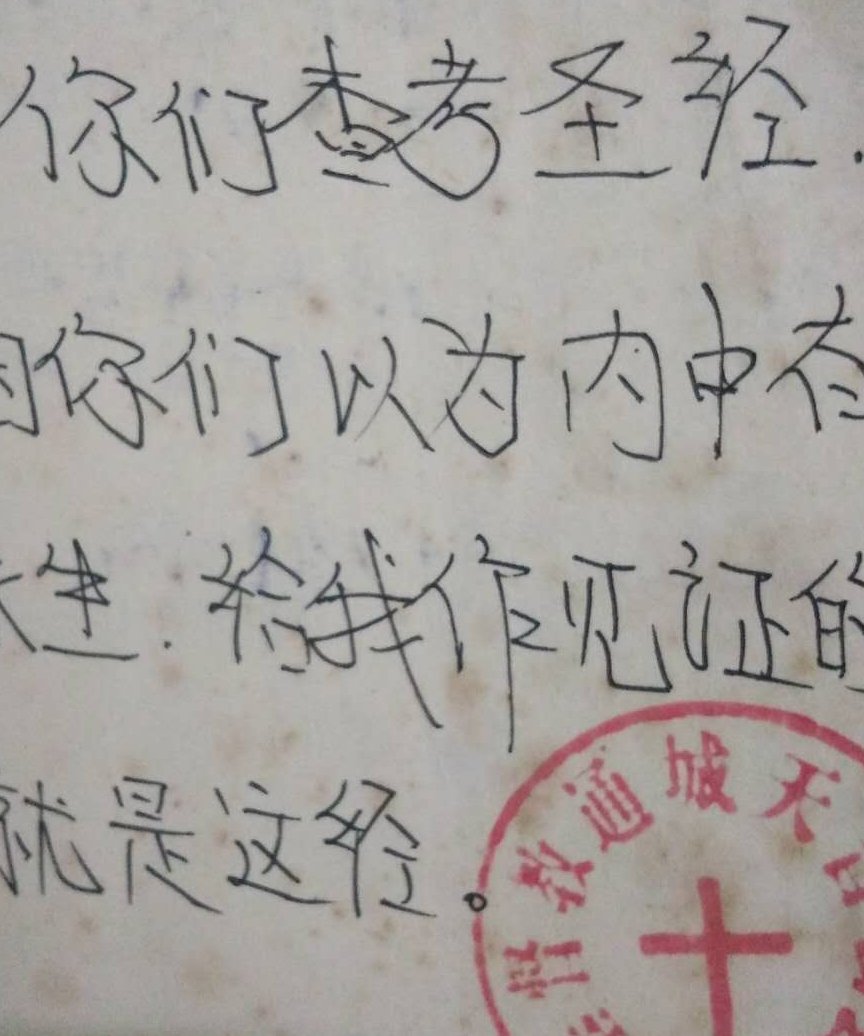 你们查考圣经.
因你们以为内中有
永生.给我作见证的
就是这经。
督教通城天